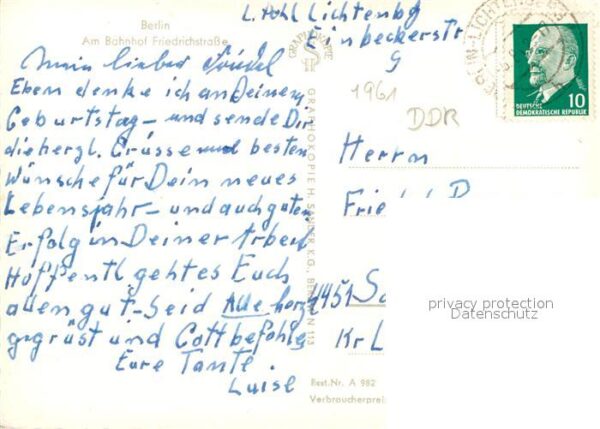 Berlin
Am Bahnhof Friedrichstraße
L. Lichtenbg
Einbeckerstr
9
Mein lieber
Eben denke ich an Deinen
Geburtstag – und sende Dir
die hergl. Grüsse und besten
Wünsche für Dein neues
Lebensjahr – und auch guten
Erfolg in Deiner Arbeit
Hoffentl. geht es Euch
allen gut – Seid Alle herzl
gegrüst und Gott befohle
Eure Tante
Luise
GRAPHOKOPIE H. SANDER K.G., BERLIN N 113
1961
DDR
DEUTSCHE
DEMOKRATISCHE REPUBLIK
10
Herrn
Frie
4451 Sc
Kr L
privacy protection
Datenschutz
Best.Nr. A 982
Verbraucherpreis